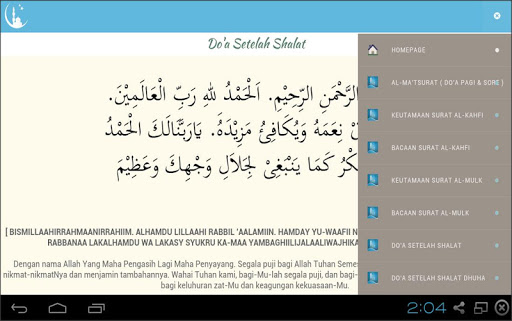 Do'a Setelah Shalat
الرَّحْمَنِ الرَّحِيْمِ. اَلْحَمْدُ لِلّٰهِ رَبِّ الْعَالَمِيْنَ.
نِعَمَهُ وَيُكَافِئُ مَزِيْدَهُ. يَارَبَّنَالَكَ الْحَمْدُ
كَمَا يَنْبَغِىْ لِجَلَالِ وَجْهِكَ وَعَظِيْمِ
[ BISMILLAAHIRRAHMAANIRRAHIIM. ALHAMDU LILLAAHI RABBIL 'AALAMIIN. HAMDAY YU-WAAFII N
RABBANAA LAKALHAMDU WA LAKASY SYUKRU KA-MAA YAMBAGHIILIJALAALIWAJHIKA
Dengan nama Allah Yang Maha Pengasih Lagi Maha Penyayang. Segala puji bagi Allah Tuhan Seme
nikmat-nikmatNya dan menjamin tambahannya. Wahai Tuhan kami, bagi-Mu-lah segala puji, dan bagi-
bagi keluhuran zat-Mu dan keagungan kekuasaan-Mu.
HOMEPAGE
AL-MA'TSURAT ( DO'A PAGI & SORE )
KEUTAMAAN SURAT AL-KAHFI
BACAAN SURAT AL-KAHFI
KEUTAMAAN SURAT AL-MULK
BACAAN SURAT AL-MULK
DO'A SETELAH SHALAT
DO'A SETELAH SHALAT DHUHA
2:04